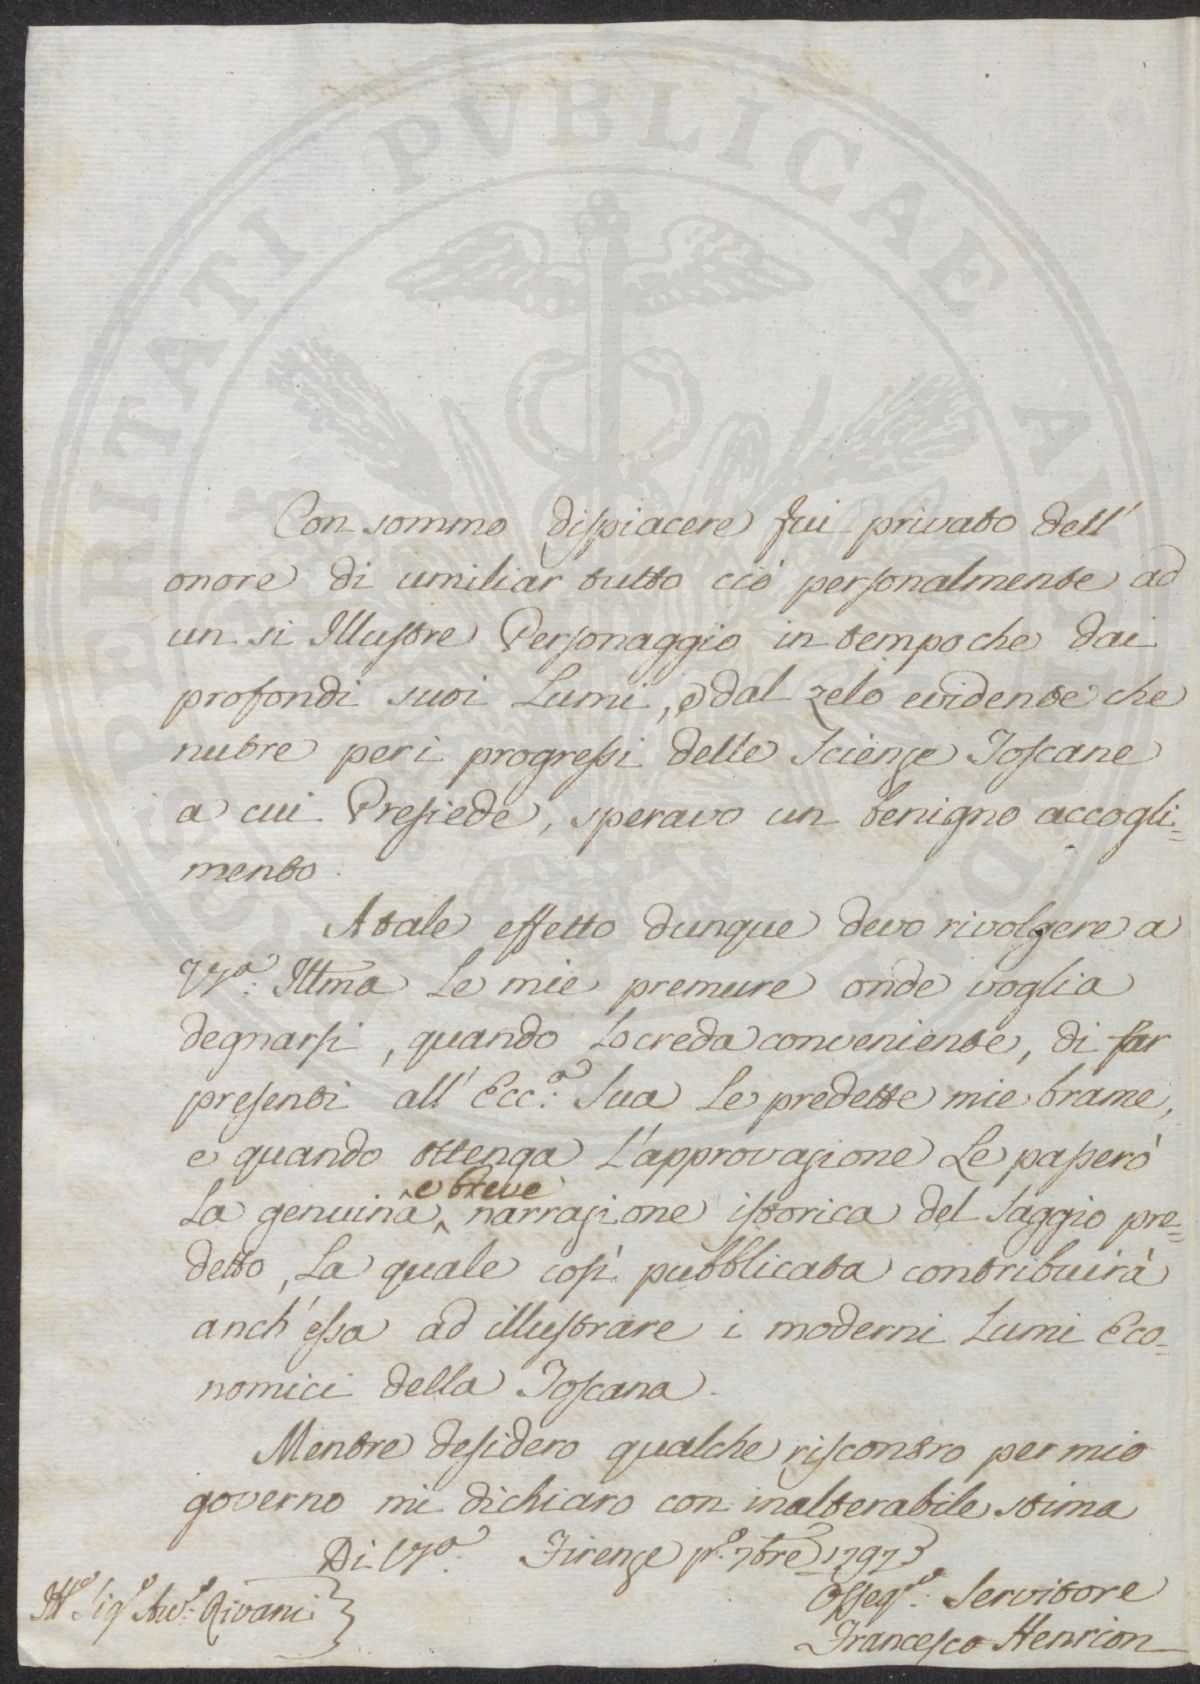 PROSPERITATI PVBLICAE AVGENDAE
Con sommo dispiacere fui privato dell'
onore di umiliar tutto ciò personalmente ad
un si Illustre Personaggio in tempo che dai
profondi suoi Lumi, e dal zelo evidente che
nutre per i progressi delle Scienze Toscane
a cui Presiede, speravo un benigno accogli=
mento.
A tale effetto dunque devo rivolgere a
V.S.ª Illma Le mie premure onde voglia
degnarsi, quando Lo creda conveniente, di far
presenti all' Ecc.ª Sua Le predette mie brame,
e quando ottenga L'approvazione Le passerò
e breve
La genuina narrazione istorica del Saggio pre=
detto, La quale così pubblicata contribuirà
anch'essa ad illustrare i moderni Lumi Eco=
nomici della Toscana.
Mentre desidero qualche riscontro per mio
governo mi dichiaro con inalterabile stima
Di V.S.ª Firenze p.º 7bre 1797
Ill.º Sig.º Avv.º Rivani
Osseq.º Servitore
Francesco Henrion